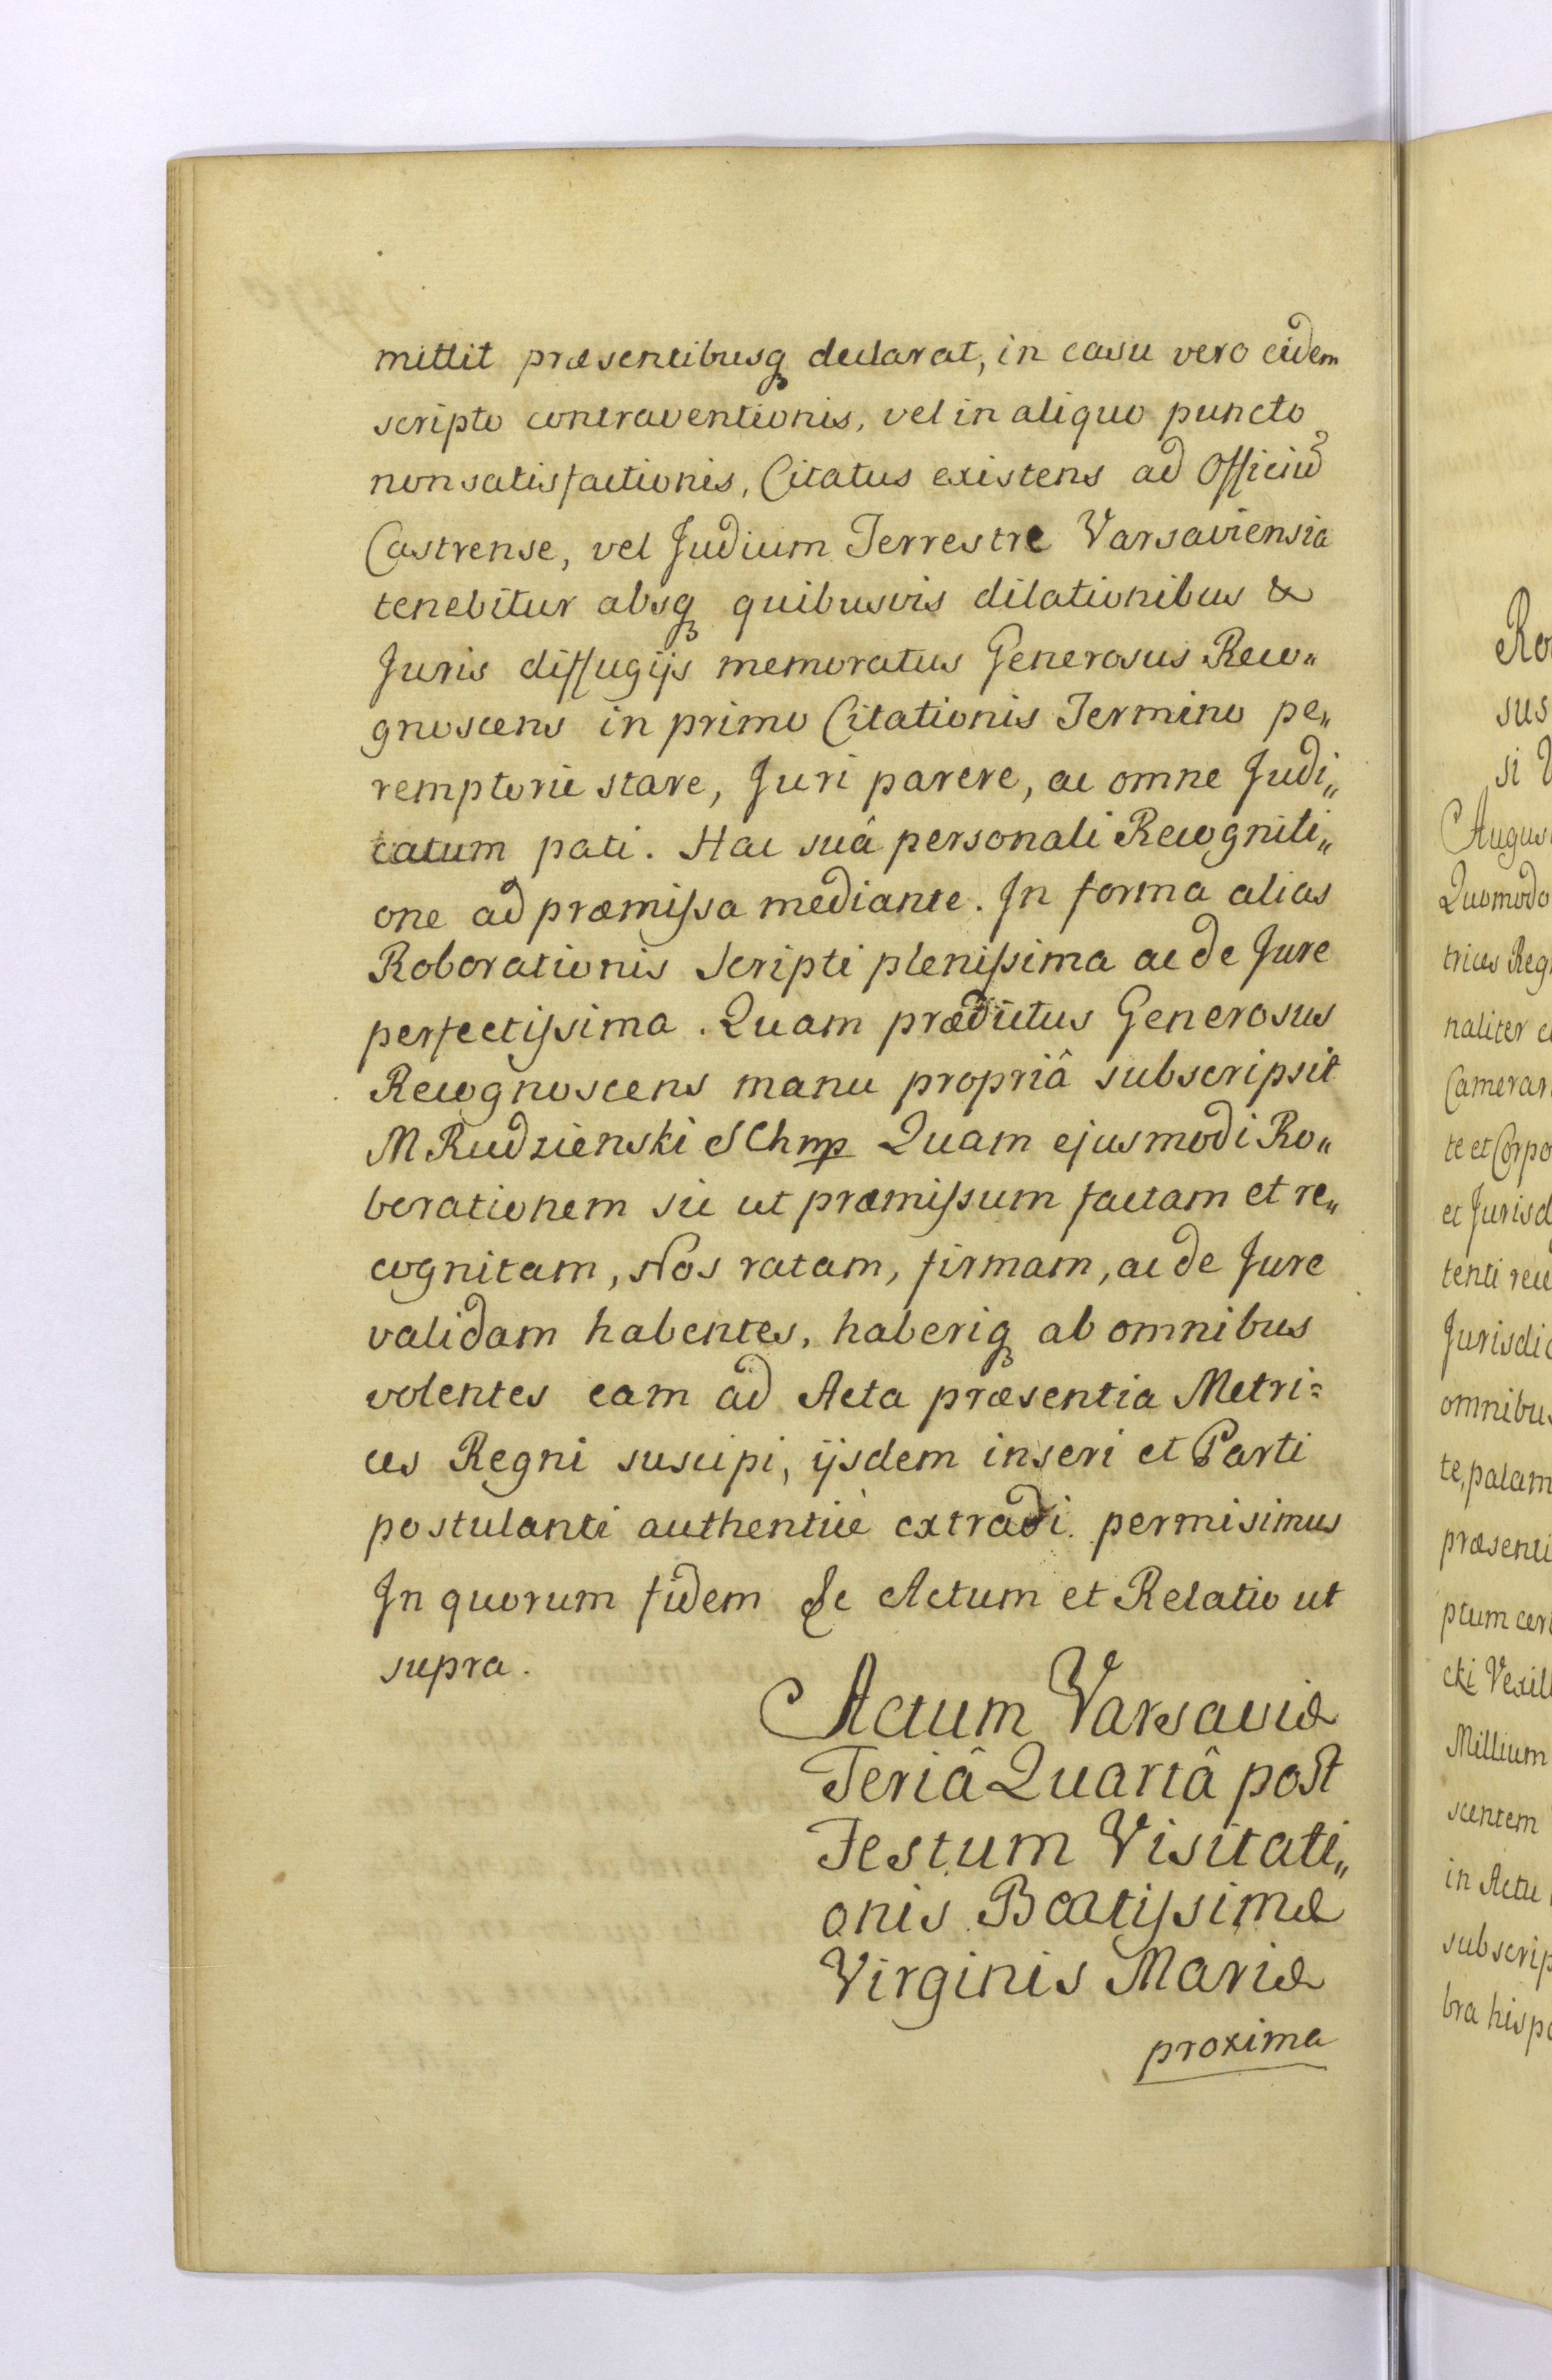 mittit præsentibusq declarat, in casu vero eidem
scripto contraventionis, vel in aliquo puncto
nonsatisfactionis, Citatus existens ad Officiũ
Castrense, vel Judicium Terrestre Varsaviensia
tenebitur absq quibusvis dilationibus &
Juris diffugijs memoratus Generosus Reco„
gnoscens in primo Citationis Termino pe„
remptorie stare, Juri parere, ac omne Judi„
catum pati. Hac suâ personali Recogniti„
one ad præmissa mediante. In forma alias
Roborationis Scripti plenissima ac de Jure
perfectissima. Quam prædictus Generosus
Recognoscens manu propriâ subscripsit
M Rudzienski SChmp Quam ejusmodi Ro„
borationem sic ut præmissum factam et re„
cognitam, Nos ratam, firmam, ac de Jure
validam habentes, haberiq ab omnibus
volentes eam ad Acta præsentia Metri=
ces Regni suscipi, ijsdem inseri et Parti
postulanti authenticè extradi. permisimus
In quorum fidem &c Actum et Relatio ut
supra.
Actum Varsaviæ
Feriâ Quartâ post
Festum Visitati„
onis Beatissimæ
Virginis Mariæ
proxima
sus
si
Augus
Quomodo
trices Reg
naliter
Camerar
te et Corpo
et Jurisd
tenti rec
Jurisdic
omnibus
te, palam
præsenti
ptum cer
cki Vexil
Millium
scentem
in Actu
subscrip
bra hisp